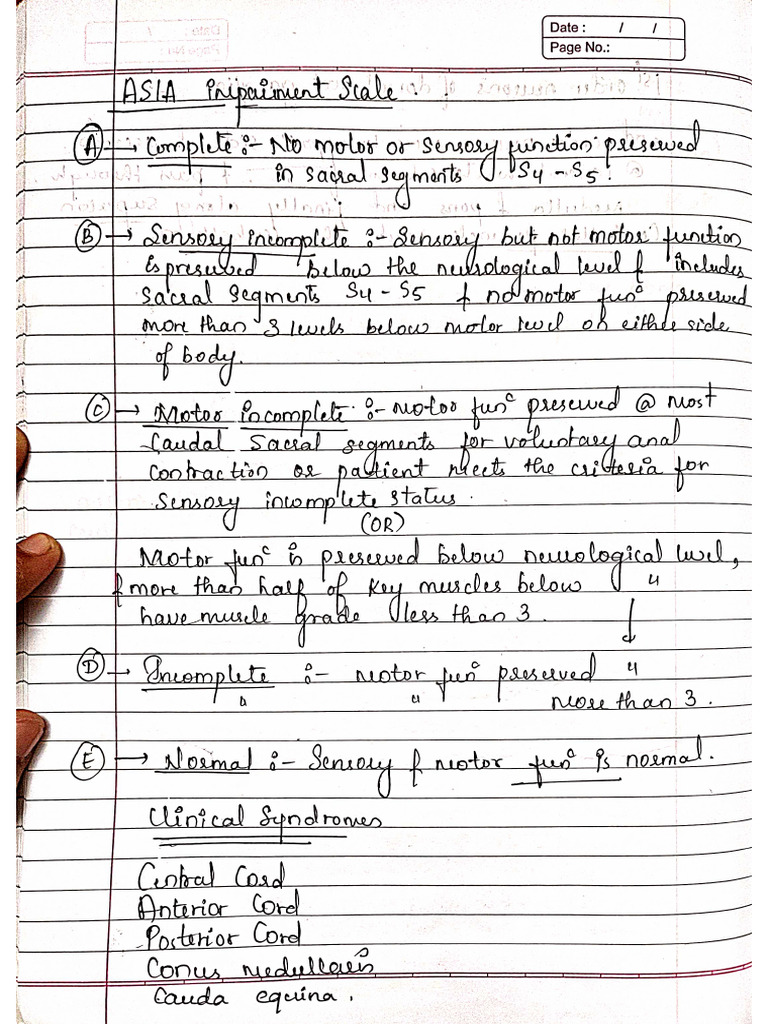 Date : / /
Page No.:
ASIA Impairment Scale :
(A) → Complete :- No motor or sensory function preserved
in sacral segments S4 - S5.
(B) → Sensory incomplete :- Sensory but not motor function
is preserved below the neurological level & includes
sacral segments S4 - S5 & no motor funᶜ preserved
more than 3 levels below motor level on either side
of body.
(C) → Motor incomplete :- motor funᶜ preserved @ most
caudal sacral segments for voluntary anal
contraction or patient meets the criteria for
sensory incomplete status.
(OR)
Motor funᶜ is preserved below neurological level,
& more than half of key muscles below "
have muscle grade less than 3. ↓
(D) → Incomplete :- motor funᶜ preserved "
" " more than 3.
(E) → Normal :- Sensory & motor funᶜ is normal.
Clinical Syndromes
Central Cord
Anterior Cord
Posterior Cord
Conus medullaris
Cauda equina.